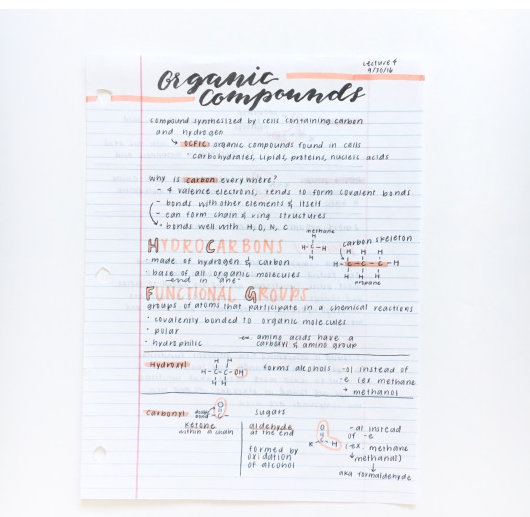 Lecture 4
9/30/16
Organic
Compounds
compound synthesized by cells containing carbon
and hydrogen
↳ OCFIC organic compounds found in cells
· carbohydrates, lipids, proteins, nucleic acids
why is carbon everywhere?
- 4 valence electrons, tends to form covalent bonds
- bonds with other elements & itself
- can form chain & ring structures
· bonds well with H, O, N, C
HYDROCARBONS
· made of hydrogen & carbon
· base of all organic molecules
end in "ane"
methane
H
H-C-H
H
carbon skeleton
H H H
H-C-C-C-H
H H H
propane
FUNCTIONAL GROUPS
groups of atoms that participate in a chemical reactions
· covalently bonded to organic molecules
· polar
· hydrophilic
ex. amino acids have a
carboxyl & amino group
Hydroxyl
H H
H-C-C-OH
H H
forms alcohols
-ol instead of
-e (ex methane
→ methanol
Carbonyl
double bond
O
C
sugars
ketone
within a chain
aldehyde
at the end
formed by
oxidation
of alcohol
O
R C H
-al instead
of -e
(ex. methane
↓methanal)
aka formaldehyde